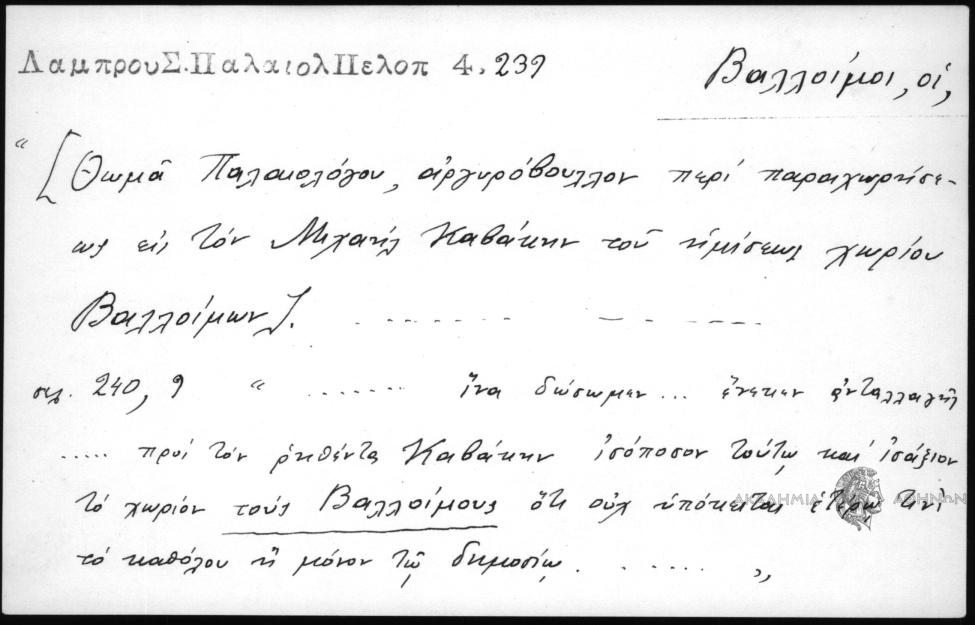 ΛαμπρουΣ.ΠαλαιολΠελοπ 4. 239
Βαλλοίμοι, οἱ,
“ [Θωμᾶ Παλαιολόγου, ἀργυρόβουλλον περὶ παραχωρήσε-
ως εἰς τὸν Μιχαὴλ Καβάκην τοῦ ἡμίσεως χωρίου
Βαλλοίμων]. . - - - - - - - — - - - - - -
σελ. 240, 9 “ ....... ἵνα δώσωμεν ... ἕνεκεν ἀνταλλαγῆς
..... πρὸς τὸν ῥηθέντα Καβάκην ἰσόποσον τούτῳ καὶ ἰσάξιον
τὸ χωρίον τοὺς Βαλλοίμους ὅτι οὐχ ὑπόκειται ἑτέρῳ τινὶ
τὸ καθόλου ἢ μόνον τῷ δημοσίῳ. . . . . . . ”
ΑΚΑΔΗΜΙΑ ΑΘΗΝΩΝ